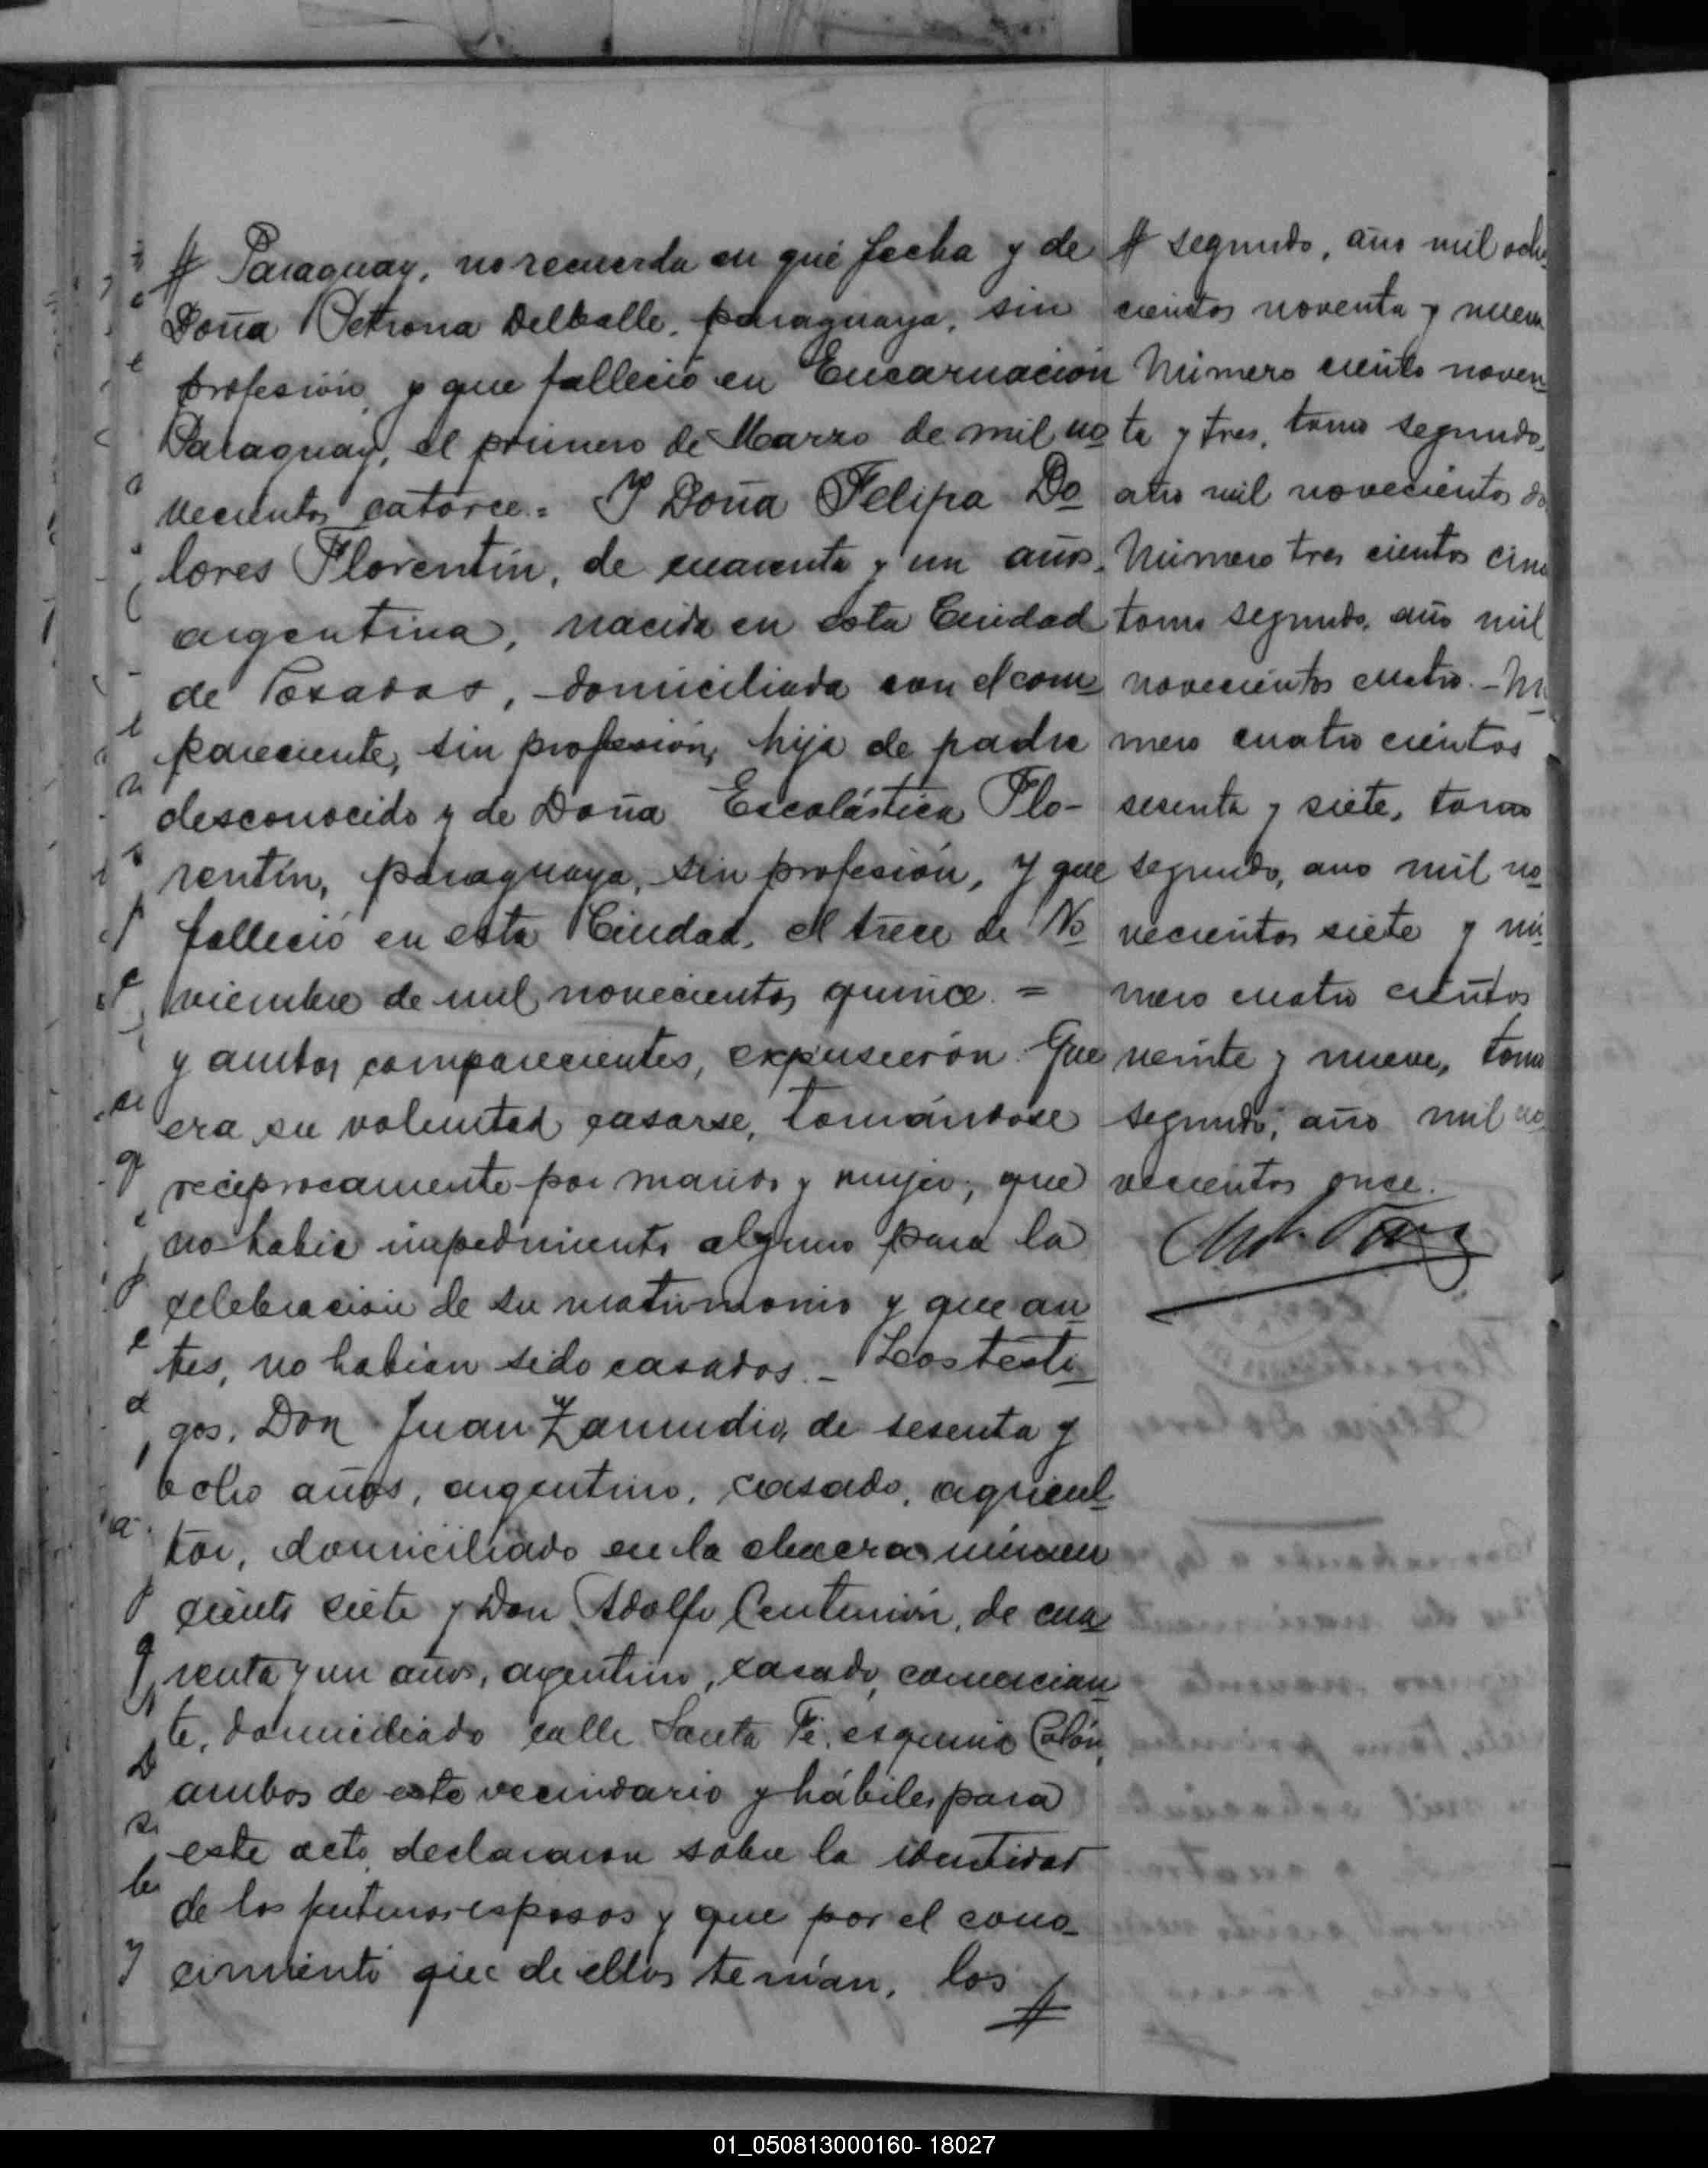 # Paraguay, no recuerda en qué fecha y de
Doña Petrona Delballe, paraguaya, sin
profesión, y que falleció en Encarnación
Paraguay, el primero de Marzo de mil no
vecientos catorce.= Y Doña Felipa Do
lores Florentín, de cuarenta y un años,
argentina, nacida en esta Ciudad
de Posadas, domiciliada con el com
pareciente, sin profesión, hija de padre
desconocido y de Doña Escolástica Flo-
rentín, paraguaya, sin profesión, y que
falleció en esta Ciudad, el trece de No
viembre de mil novecientos quince. =
y ambos comparecientes, expusierón: Que
era su voluntad casarse, tomándose
reciprocamente por marido y mujer; que
no habia impedimento alguno para la
celebración de su matrimonio y que an
tes, no habian sido casados.- Los testi
gos, Don Juan Zamudio, de sesenta y
ocho años, argentino, casado, agricul
tor, domiciliado en la chacra número
ciento siete y Don Adolfo Centurión, de cua
renta y un años, argentino, casado, comercian
te, domiciliado calle Santa Fé, esquina Colón,
ambos de este vecindario y hábiles para
este acto, declararon sobre la identidad
de los futuros esposos y que por el cono-
cimiento que de ellos tenían, los
#
# segundo, año mil ocho
cientos noventa y nueve
Número ciento noven
ta y tres, tomo segundo,
año mil novecientos do
Número tres cientos cinc
tomo segundo, año mil
novecientos cuatro.- Nú
mero cuatro cientos
sesenta y siete, tomo
segundo, año mil no
vecientos siete y nú
mero cuatro cientos
veinte y nueve, tomo
segundo, año mil no
vecientos once.
01_050813000160- 18027